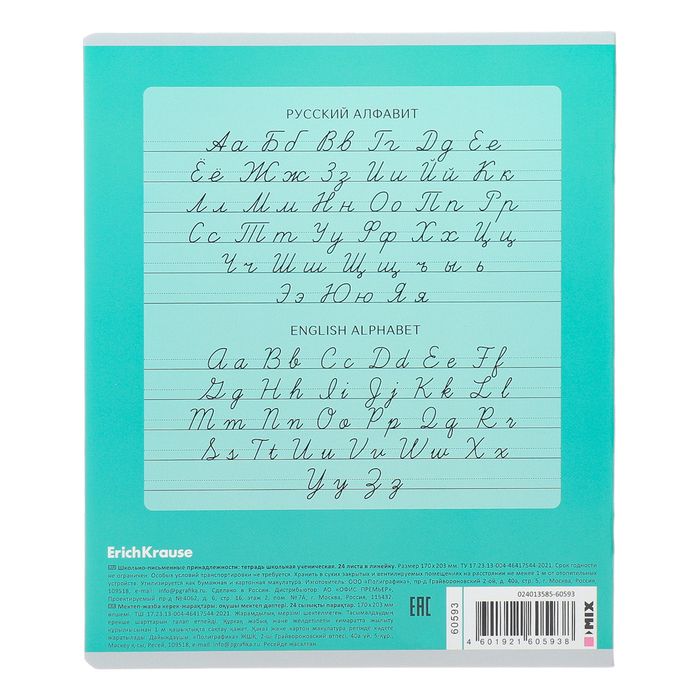 РУССКИЙ АЛФАВИТ
Аа Бб Вв Гг Дд Ее
Ёё Жж Зз Ии Йй Кк
Лл Мм Нн Оо Пп Рр
Сс Тт Уу Фф Хх Цц
Чч Шш Щщ ъ ы ь
Ээ Юю Яя
ENGLISH ALPHABET
Aa Bb Cc Dd Ee Ff
Gg Hh Ii Jj Kk Ll
Mm Nn Oo Pp Qq Rr
Ss Tt Uu Vv Ww Xx
Yy Zz
ErichKrause
Школьно-письменные принадлежности: тетрадь школьная ученическая. 24 листа в линейку. Размер 170x203 мм. ТУ 17.23.13-004-46417544-2021. Срок годности
не ограничен. Особых условий транспортировки не требуется. Хранить в сухих закрытых и вентилируемых помещениях на расстоянии не менее 1 м от отопительных
устройств. Утилизируется как бумажная и картонная макулатура. Изготовитель: ООО «Полиграфика», пр-д Грайвороновский 2-ой, д. 40а, стр. 5, г. Москва, Россия
109518, e-mail: info@pgrafika.ru. Сделано в России. Дистрибьютор: АО «ОФИС ПРЕМЬЕР»,
Проектируемый пр-д №4062, д. 6, стр. 16, этаж 2, пом. №7А, г. Москва, Россия, 115432
Мектеп-жазба керек-жарақтары: оқушы мектеп дәптері. 24 сызықты парақтар. 170x203 мм
EAC
024013585-60593
60593
4 601921 605938
MIX